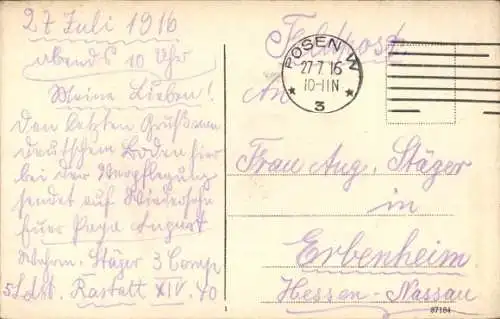 27 Juli 1916
abends 10 Uhr
Meine Lieben!
Den letzten Gruß von
deutschem Boden hier
bei der Verpflegung
sendet auf Wiedersehn
Euer Papa August
Wehrm. Stäger 3 Comp
Rastatt XIV. 40
Feldpost
POSEN W
27.7.16
10-11N
* 3 *
An
Frau Aug. Stäger
in
Erbenheim
Hessen-Nassau
1
87184